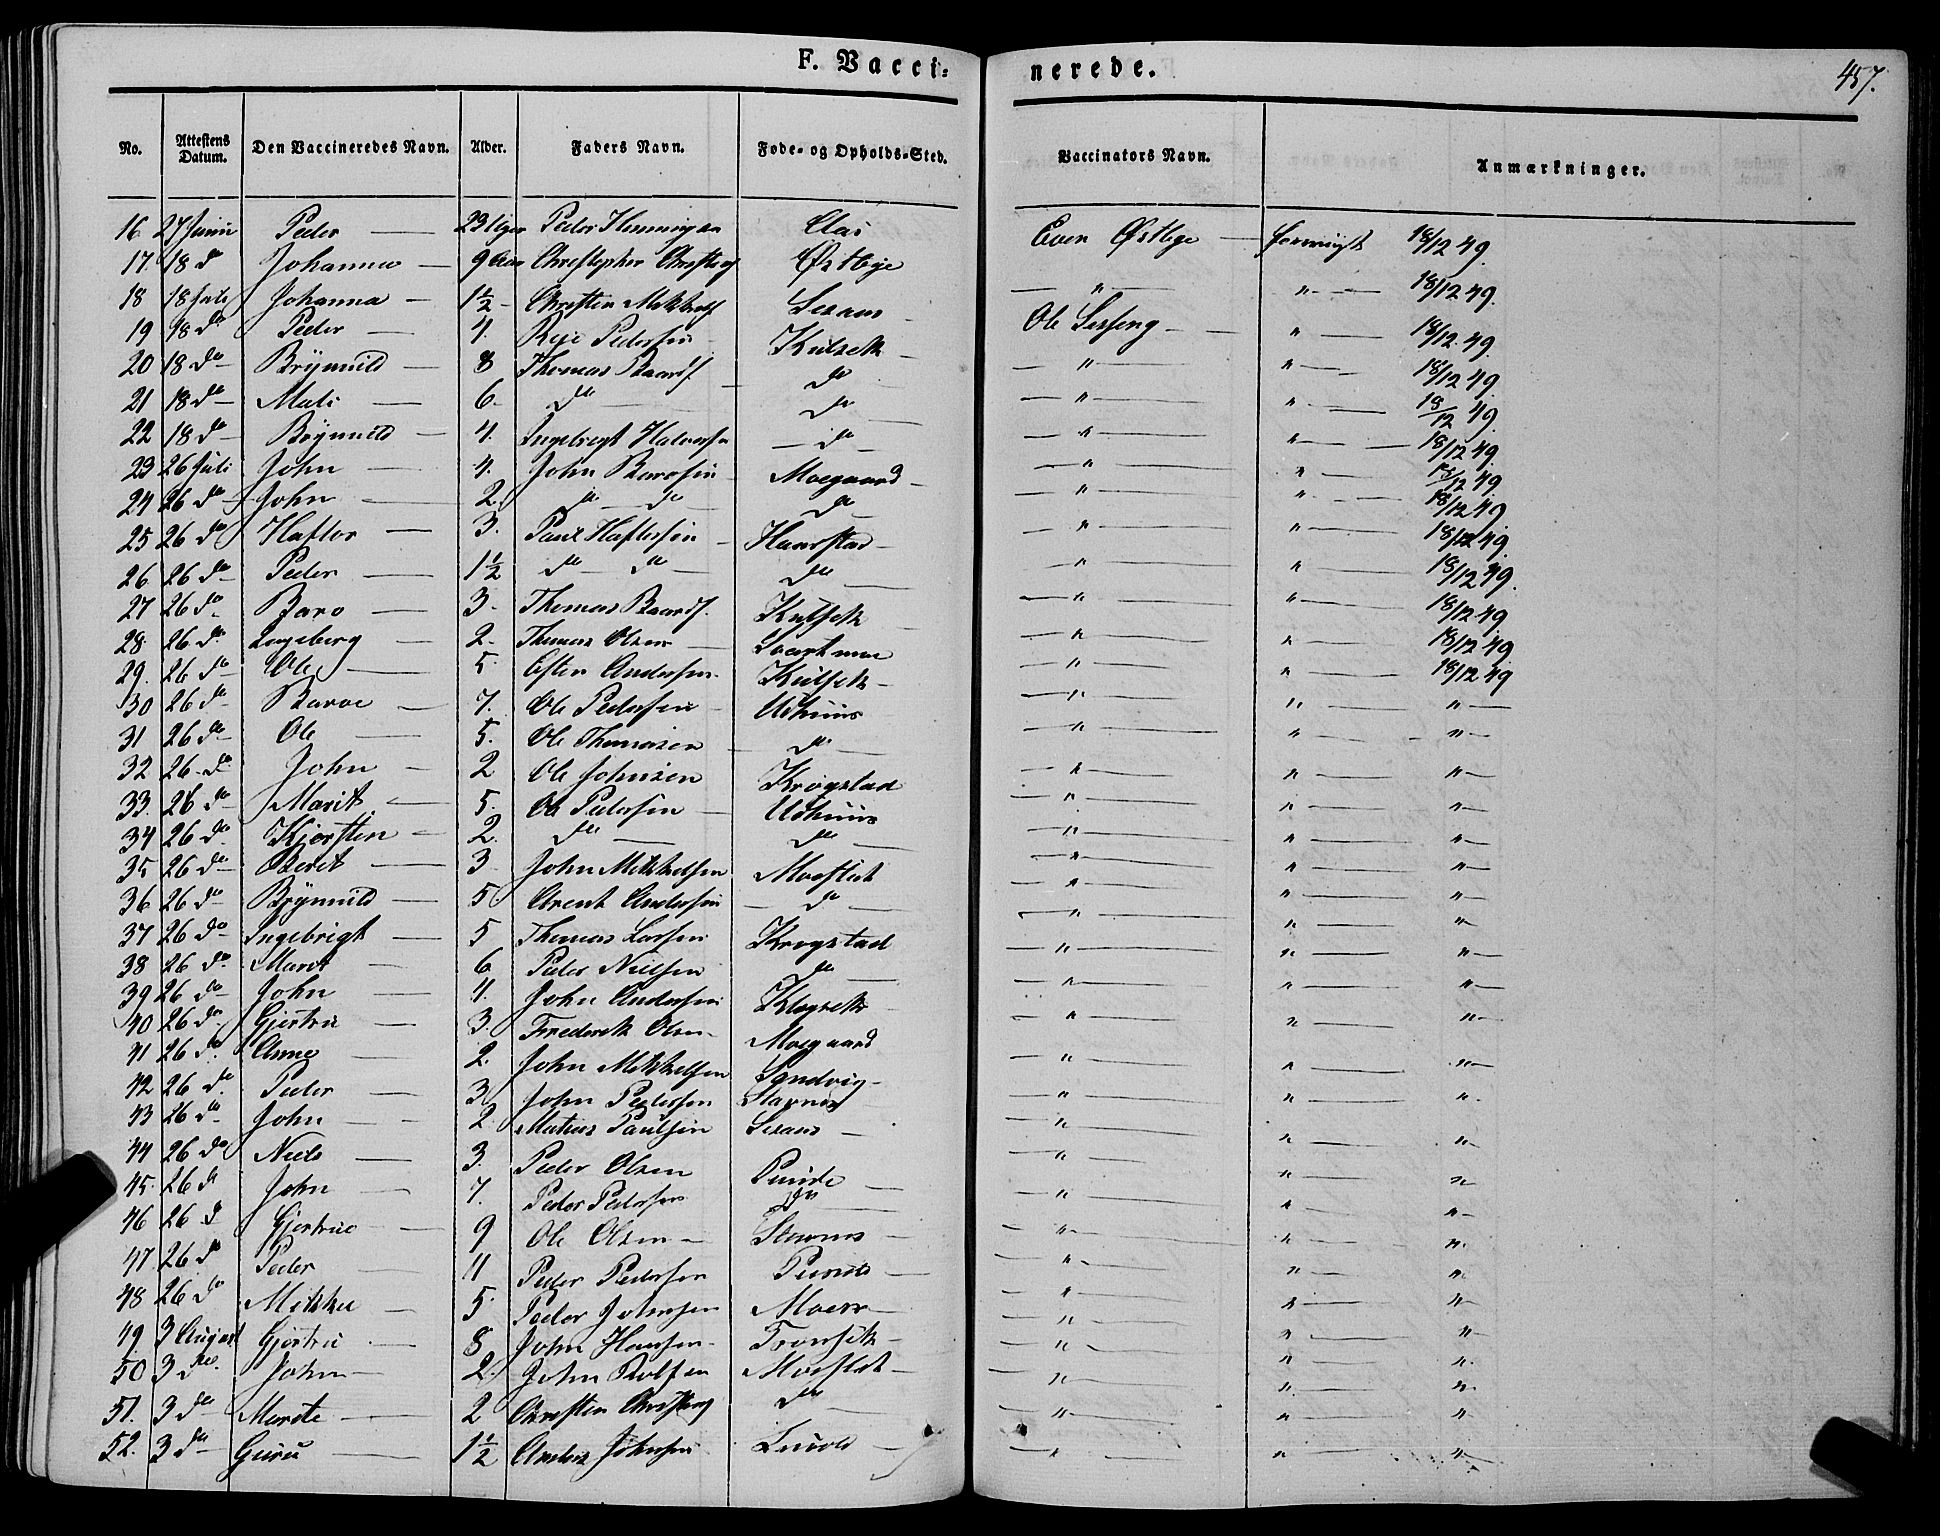 F. Vacci= nerede.
457.
No. Attestens Datum. Den Vaccineredes Navn. Alder. Faders Navn. Føde- og Opholds-Sted. Vaccinators Navn. Anmærkninger.
16 27 Juni Peder — 23 Uger Peder Henningsen Aas Even Østbye — 18/12 49.
17 18 do Johanna — 9 Aar Christopher Østbye — " — " — 18/12 49.
18 18 Juli Johanna — 1½ - Christen Mikkels Seraas — Ole — " — 18/12 49.
19 18 do Peder — 4. Pedersen Kulseth — " — " — 18/12 49.
20 18 do — Brynnild — 8 Thomas Baards. — do — " — " — 18/12 49.
21 18 do — Mali — 6. do — do — " — " — 18/12 49.
22 18 do — Brynnild — 4. Ingebrigt Halvorsen — do — — " — " — 18/12 49
23 26 Juli John — 4. John Baardsen — Moegaard — — " — " — 18/12 49
24 26 do John — 2. do — do — do — " — " — 18/12 49
25 26 do Haftor — 3. Paul Haftorsen — — " — " — 18/12 49.
26 26 do — Peder — 1½ do — do — do — " — " — 18/12 49.
27 26 do Baro — 3. Thomas Baards. Kulseth — " — " — 18/12 49
28 26 do Ingeborg — 2. Thomas Olsen — — " — " — 18/12 49
29. 26 do — Ole — 5. Esten Andersen. Kulseth — — " — " — 18/12 49
30 26 do — — 7. Ole Pedersen — Udhuus — " — " — " —
31 26 do — Ole — 5. Ole Thomasen — do — — " — " — " —
32 26 do John — 2 Ole Johnsen Krogstad — " — " — " —
33. 26 do — Marit — 5. Ole Pedersen — Udhuus — " — " — " —
34 26 do Kjersten — 2. do — do — — " — " — " —
35 26 do — Beret — 3 John Mikkelsen Moeslet — " — " — " —
36 26 do — Brynnild — 5. Arent Andersen — do — — " — " — " —
37 26 do — Ingebrigt — 5 Thomas Larsen Krogstad — " — " — " —
38 26 do. Marit — 6 Peder Nielsen do — — " — " — " —
39 26 do — John — 4. John Andersen — " — " — " —
40 26 do Gjertru — 3. Frederik Olsen — Moegaard — " — " — " —
41 26 do. Arne — 2. John Mikkelsen Sandvig — — " — " — " —
42 26 do. Peder — 3. John Pedersen Stavnes — " — " — " —
43 26 do — John — 2. Matias Paulsen Seraas — — " — " — " —
44 26 do Niels — 3. Peder Olsen — " — " — " —
45. 26 do John — 7. Peder Pedersen do — " — " — " —
46 26 d Gjertrue — 9 Ole Olsen — — " — " — " —
47 26 do Peder — 11 Peder Pedersen — " — " — " —
48 26 do Mikkel — 5. Peder Johnsen — " — " — " —
49 3 August Gjertru — 8 John Hansen — — " — " — " —
50 3 do. John — 2. John Rolfsen Moeslet — — " — " — " —
51. 3 do — Marete — 2 Christen do — — " — " — " —
52. 3 do — Guru — 1½ Anders Johnsen — " — " — " —